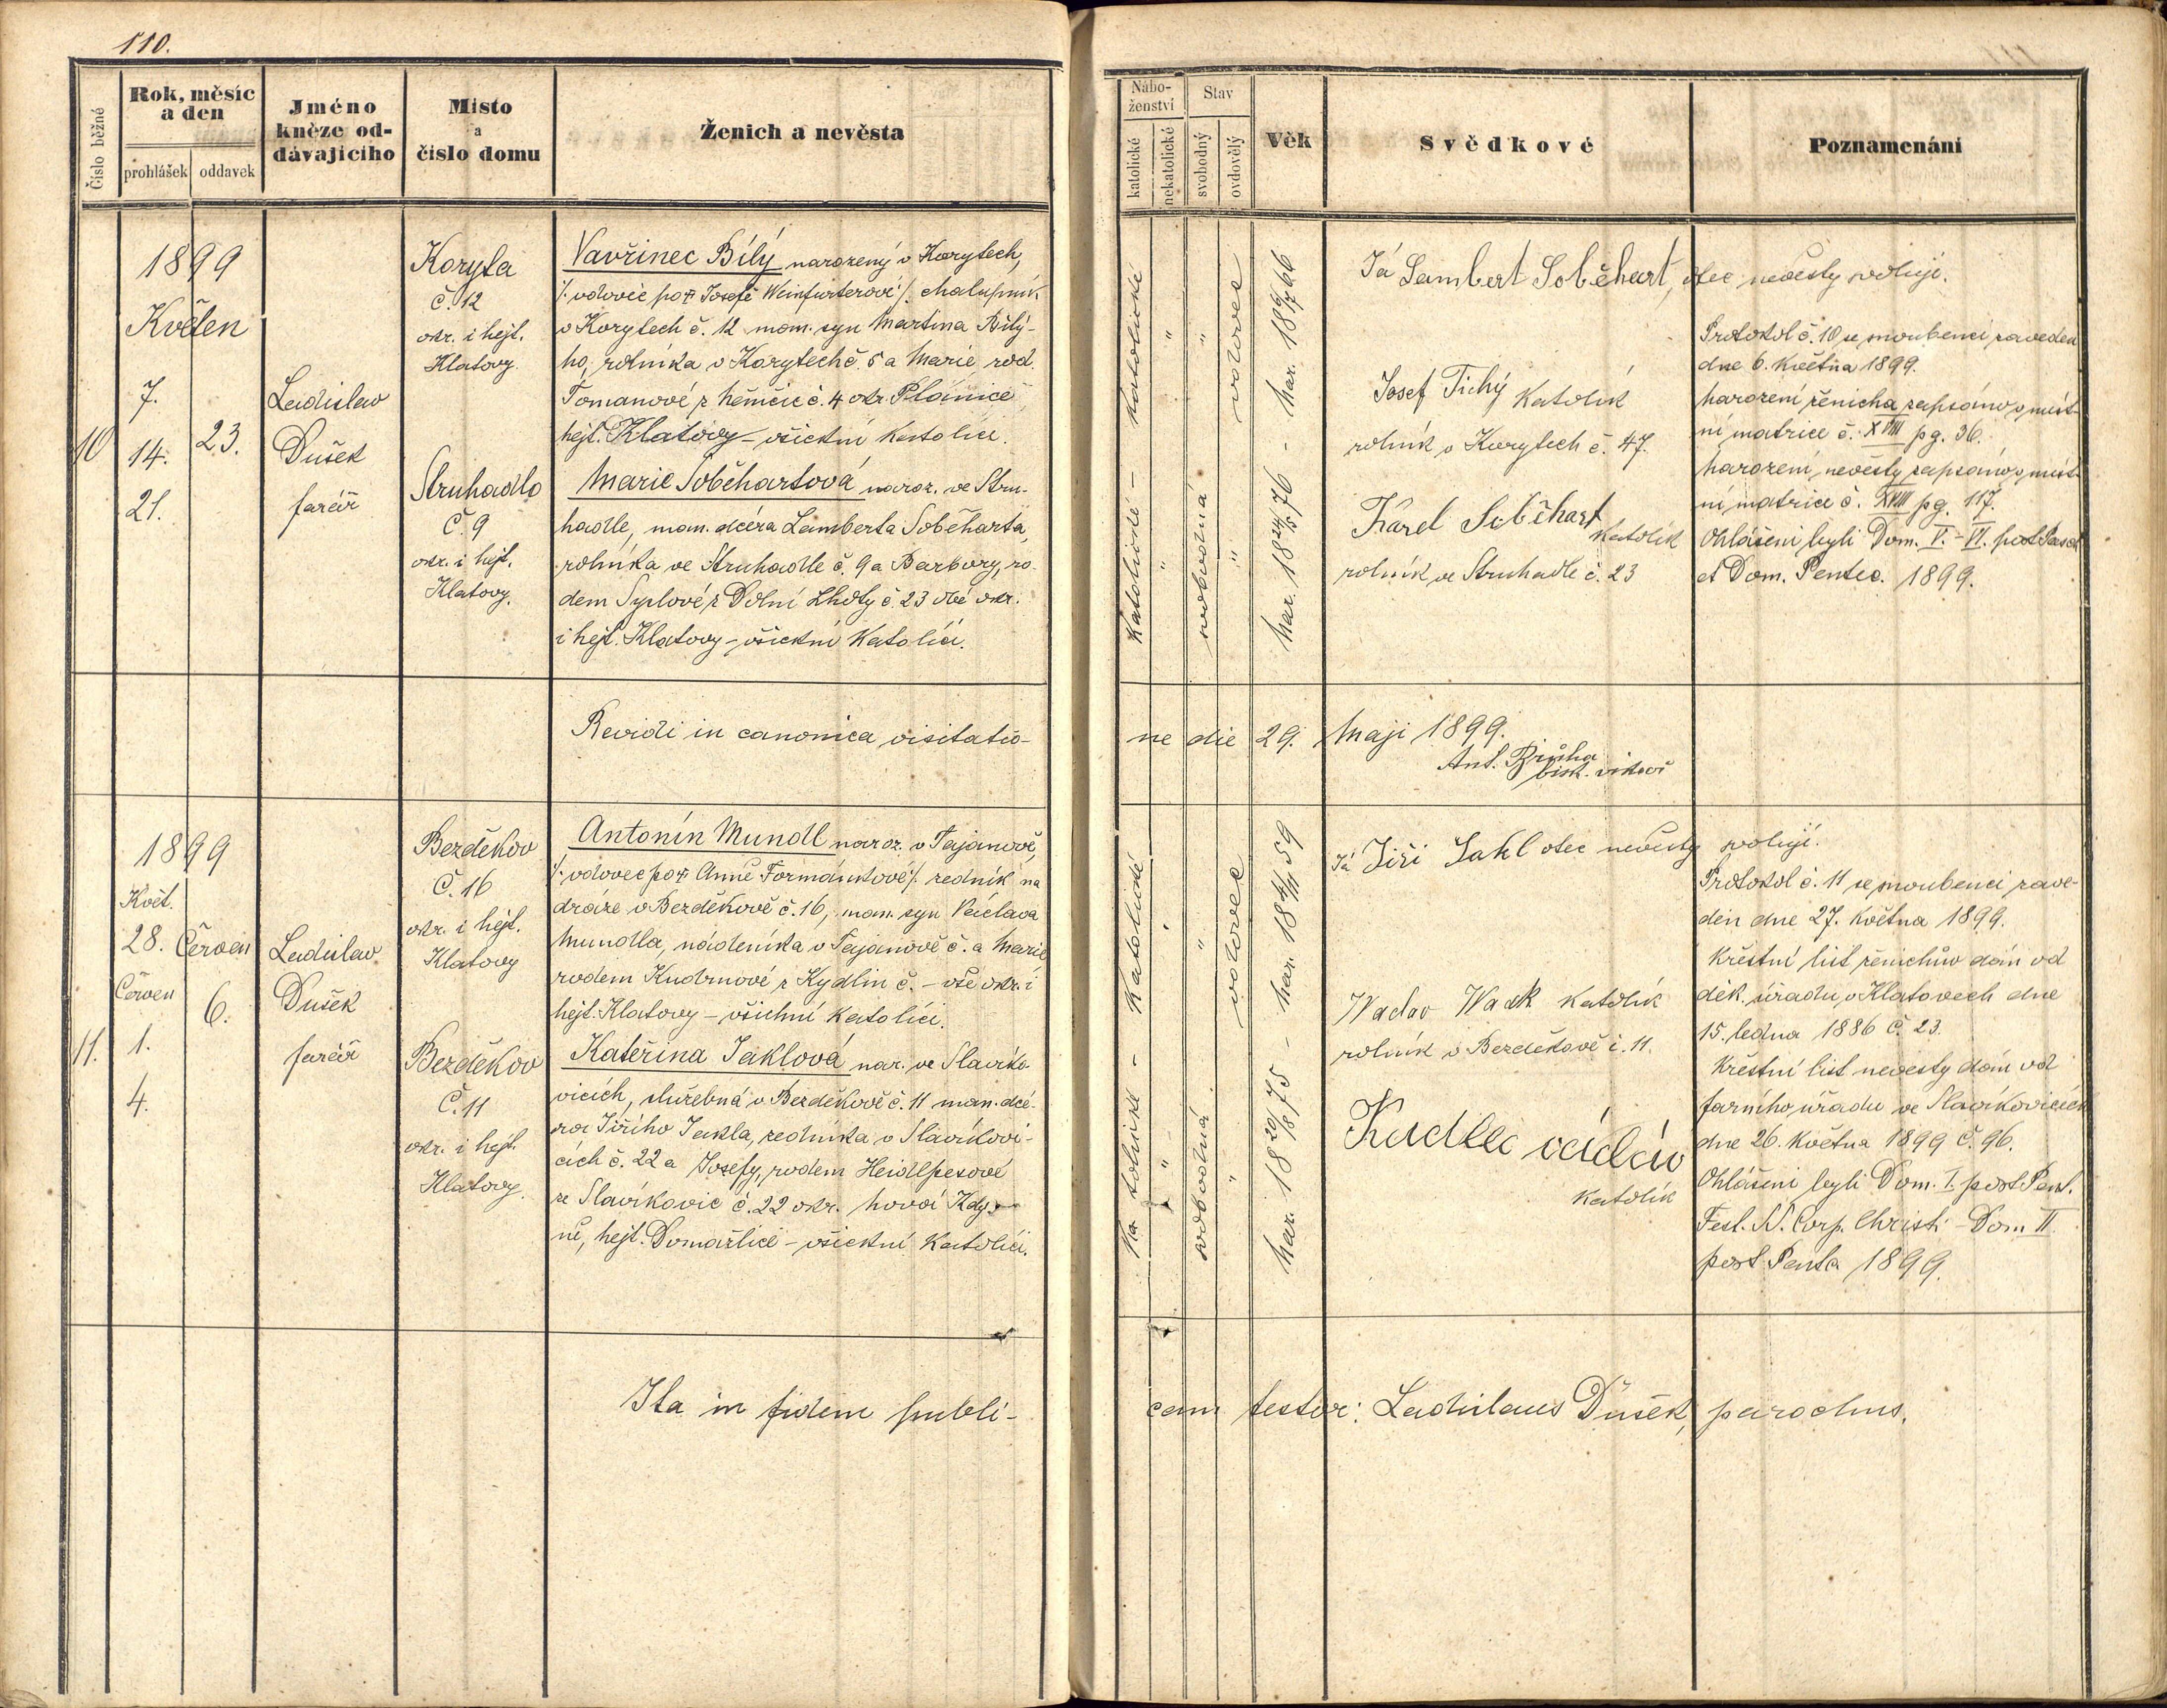 110.
Číslo běžné
Rok, měsíc
a den
prohlášek
oddavek
Jméno
kněze od-
dávajícího
Místo
a
číslo domu
Ženich a nevěsta
10
1899
Květen
7.
14.
21.
23.
Ladislav
Dušek
farář
Koryta
č. 12
okr. i hejt.
Klatovy.
Struhadlo
č. 9
okr. i hejt.
Klatovy.
Vavřinec Bílý narozený v Korytech,
/: vdovec po † Josefě Weinfurterové :/ chalupník
v Korytech č. 12 man. syn Martina Bílý-
ho, rolníka v Korytech č. 5 a Marie rod.
Tomanové z Němčic č. 4 okr. Plánice
hejt. Klatovy – všickni katolíci.
Marie Soběhartová naroz. ve Stru-
hadle, man. dcéra Lamberta Soběharta,
rolníka ve Struhadle č. 9 a Barbory, ro-
dem Syplové z Dolní Lhoty č. 23 obé okr.
i hejt. Klatovy – všickni katolíci.
Revidi in canonica visitatio-
11.
1899
Květ.
28.
Červen
1.
4.
Červen
6.
Ladislav
Dušek
farář
Bezděkov
č. 16
okr. i hejt.
Klatovy
Bezděkov
č. 11
okr. i hejt.
Klatovy.
Antonín Mundl naroz. v Tajanově,
/: vdovec po † Anně Formánkové :/ zedník na
dráze v Bezděkově č. 16, man. syn Václava
Mundla, nádeníka v Tajanově č. a Marie
rodem Kudrnové z Kydlin č. – vše okr. i
hejt. Klatovy – všichni katolíci.
Kateřina Jaklová nar. ve Slavíko-
vicích, služebná v Bezděkově č. 11 man. dcé-
ra Jiřího Jakla, zedníka v Slavíkovi-
cích č. 22 a Josefy, rodem Heidlpesové
ze Slavíkovic č. 22 okr. Nová Kdy-
ně, hejt. Domažlice – všickni katolíci.
Ita in fidem publi-
Nábo-
ženství
katolické
nekatolické
Stav
svobodný
ovdovělý
Věk
Svědkové
Poznamenání
Katolické – Katolické
" "
svobodná "
" vdovec
Nar. 18 24/5 76 – Nar. 18 6/7 66
Já Lambert Soběhart, otec nevěsty svoluji.
Josef Tichý katolík
rolník v Korytech č. 47.
Karel Soběhart
katolík
rolník ve Struhadle č. 23
Protokol č. 10 se snoubenci zaveden
dne 6. května 1899.
Narození ženicha zapsáno v míst-
ní matrice č. XVIII pg. 36.
Narození nevěsty zapsáno v míst-
ní matrice č. XVIII pg. 117.
Ohlášeni byli Dom. V. – VI. post Pasch
et Dom. Pentec. 1899.
ne die 29. Maji 1899.
Ant. Průha
bisk. vikář
Katolické – Katolické
" "
svobodná "
" vdovec
Nar. 18 20/8 75 – Nar. 18 4/11 59
Já Jiří Jakl otec nevěsty svoluji.
Waclav Wacek katolík
rolník v Bezděkově č. 11.
Kadlec václáv
katolík
Protokol č. 11 se snoubenci zave-
den dne 27. května 1899.
Křestní list ženichův dán od
děk. úřadu v Klatovech dne
15. ledna 1886 č. 23.
Křestní list nevěsty dán od
farního úřadu ve Slavíkovicích
dne 26. května 1899 č. 96.
Ohlášeni byli Dom. I. post Pent.
Fest. SS. Corp. Christi – Dom. II.
post Pente 1899.
cam testor: Ladislaus Dušek, parochus.